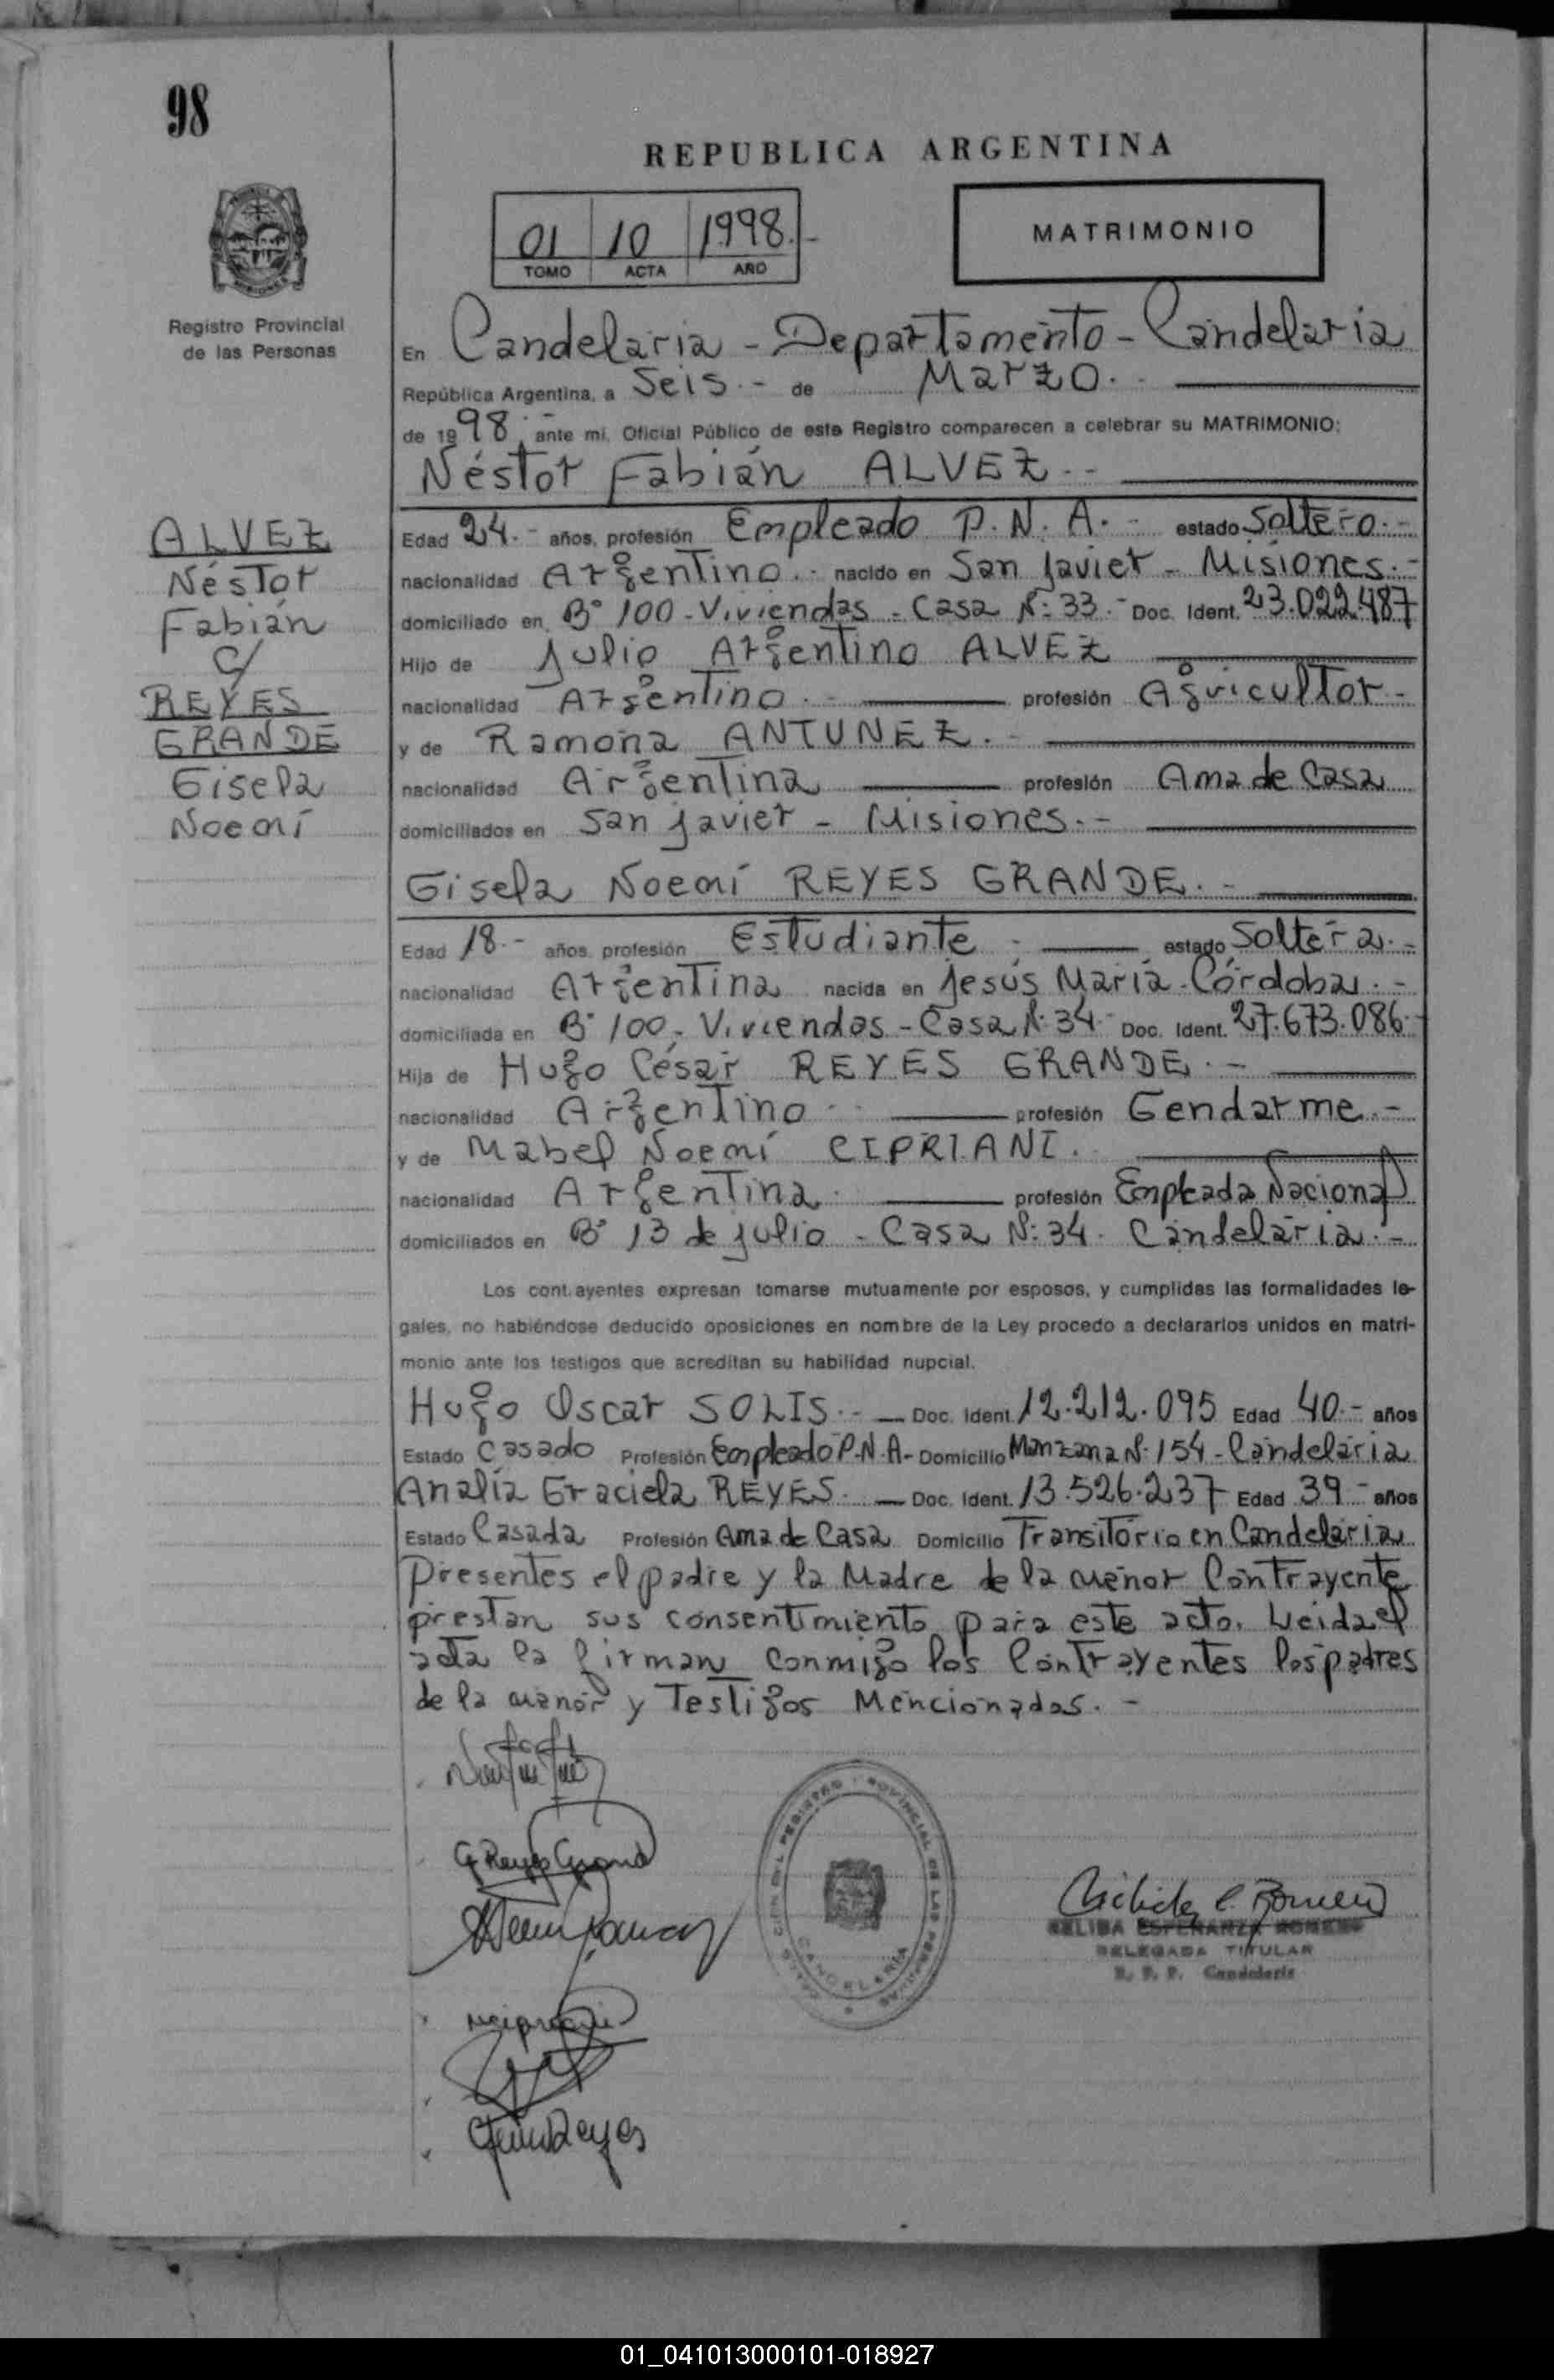 98
REPUBLICA ARGENTINA
01 10 1998.-
TOMO ACTA AÑO
MATRIMONIO
Registro Provincial
de las Personas
En Candelaria - Departamento - Candelaria
República Argentina, a Seis.- de Marzo.-
de 1998.- ante mí, Oficial Público de este Registro comparecen a celebrar su MATRIMONIO:
Néstor Fabián ALVEZ.--
ALVEZ
Néstor
Fabián
c/
REYES
GRANDE
Gisela
Noemí
Edad 24.- años, profesión Empleado P.N.A.- estado Soltero.-
nacionalidad Argentino.- nacido en San Javier - Misiones.-
domiciliado en B° 100-Viviendas - Casa N: 33.- Doc. Ident. 23.022.487
Hijo de Julio Argentino ALVEZ
nacionalidad Argentino.- profesión Agricultor-
y de Ramona ANTUNEZ.-
nacionalidad Argentina profesión Ama de Casa
domiciliados en San Javier - Misiones.-
Gisela Noemí REYES GRANDE.-
Edad 18.- años, profesión Estudiante.- estado Soltera.-
nacionalidad Argentina nacida en Jesús María - Córdoba.-
domiciliada en B° 100-Viviendas - Casa N: 34- Doc. Ident. 27.673.086-
Hija de Hugo César REYES GRANDE.-
nacionalidad Argentino.- profesión Gendarme.-
y de Mabel Noemí CIPRIANI.
nacionalidad Argentina.- profesión Empleada Nacional
domiciliados en B° 13 de julio - Casa N: 34. Candelaria.-
Los contrayentes expresan tomarse mutuamente por esposos, y cumplidas las formalidades le-
gales, no habiéndose deducido oposiciones en nombre de la Ley procedo a declararlos unidos en matri-
monio ante los testigos que acreditan su habilidad nupcial.
Hugo Oscar SOLIS.- Doc. Ident. 12.212.095 Edad 40.- años
Estado Casado Profesión Empleado P.N.A- Domicilio Manzana N: 154 - Candelaria
Analía Graciela REYES.- Doc. Ident. 13.526.237 Edad 39- años
Estado Casada Profesión Ama de Casa Domicilio Transitorio en Candelaria
Presentes el padre y la Madre de la menor Contrayente
prestan sus consentimiento para este acto. Leida el
acta la firman conmigo los Contrayentes los padres
de la menor y Testigos Mencionados.-
G Reyes Grand
ESPERANZA ROMERO
DELEGADA TITULAR
R. P. P. Candelaria
CANDELARIA
01_041013000101-018927